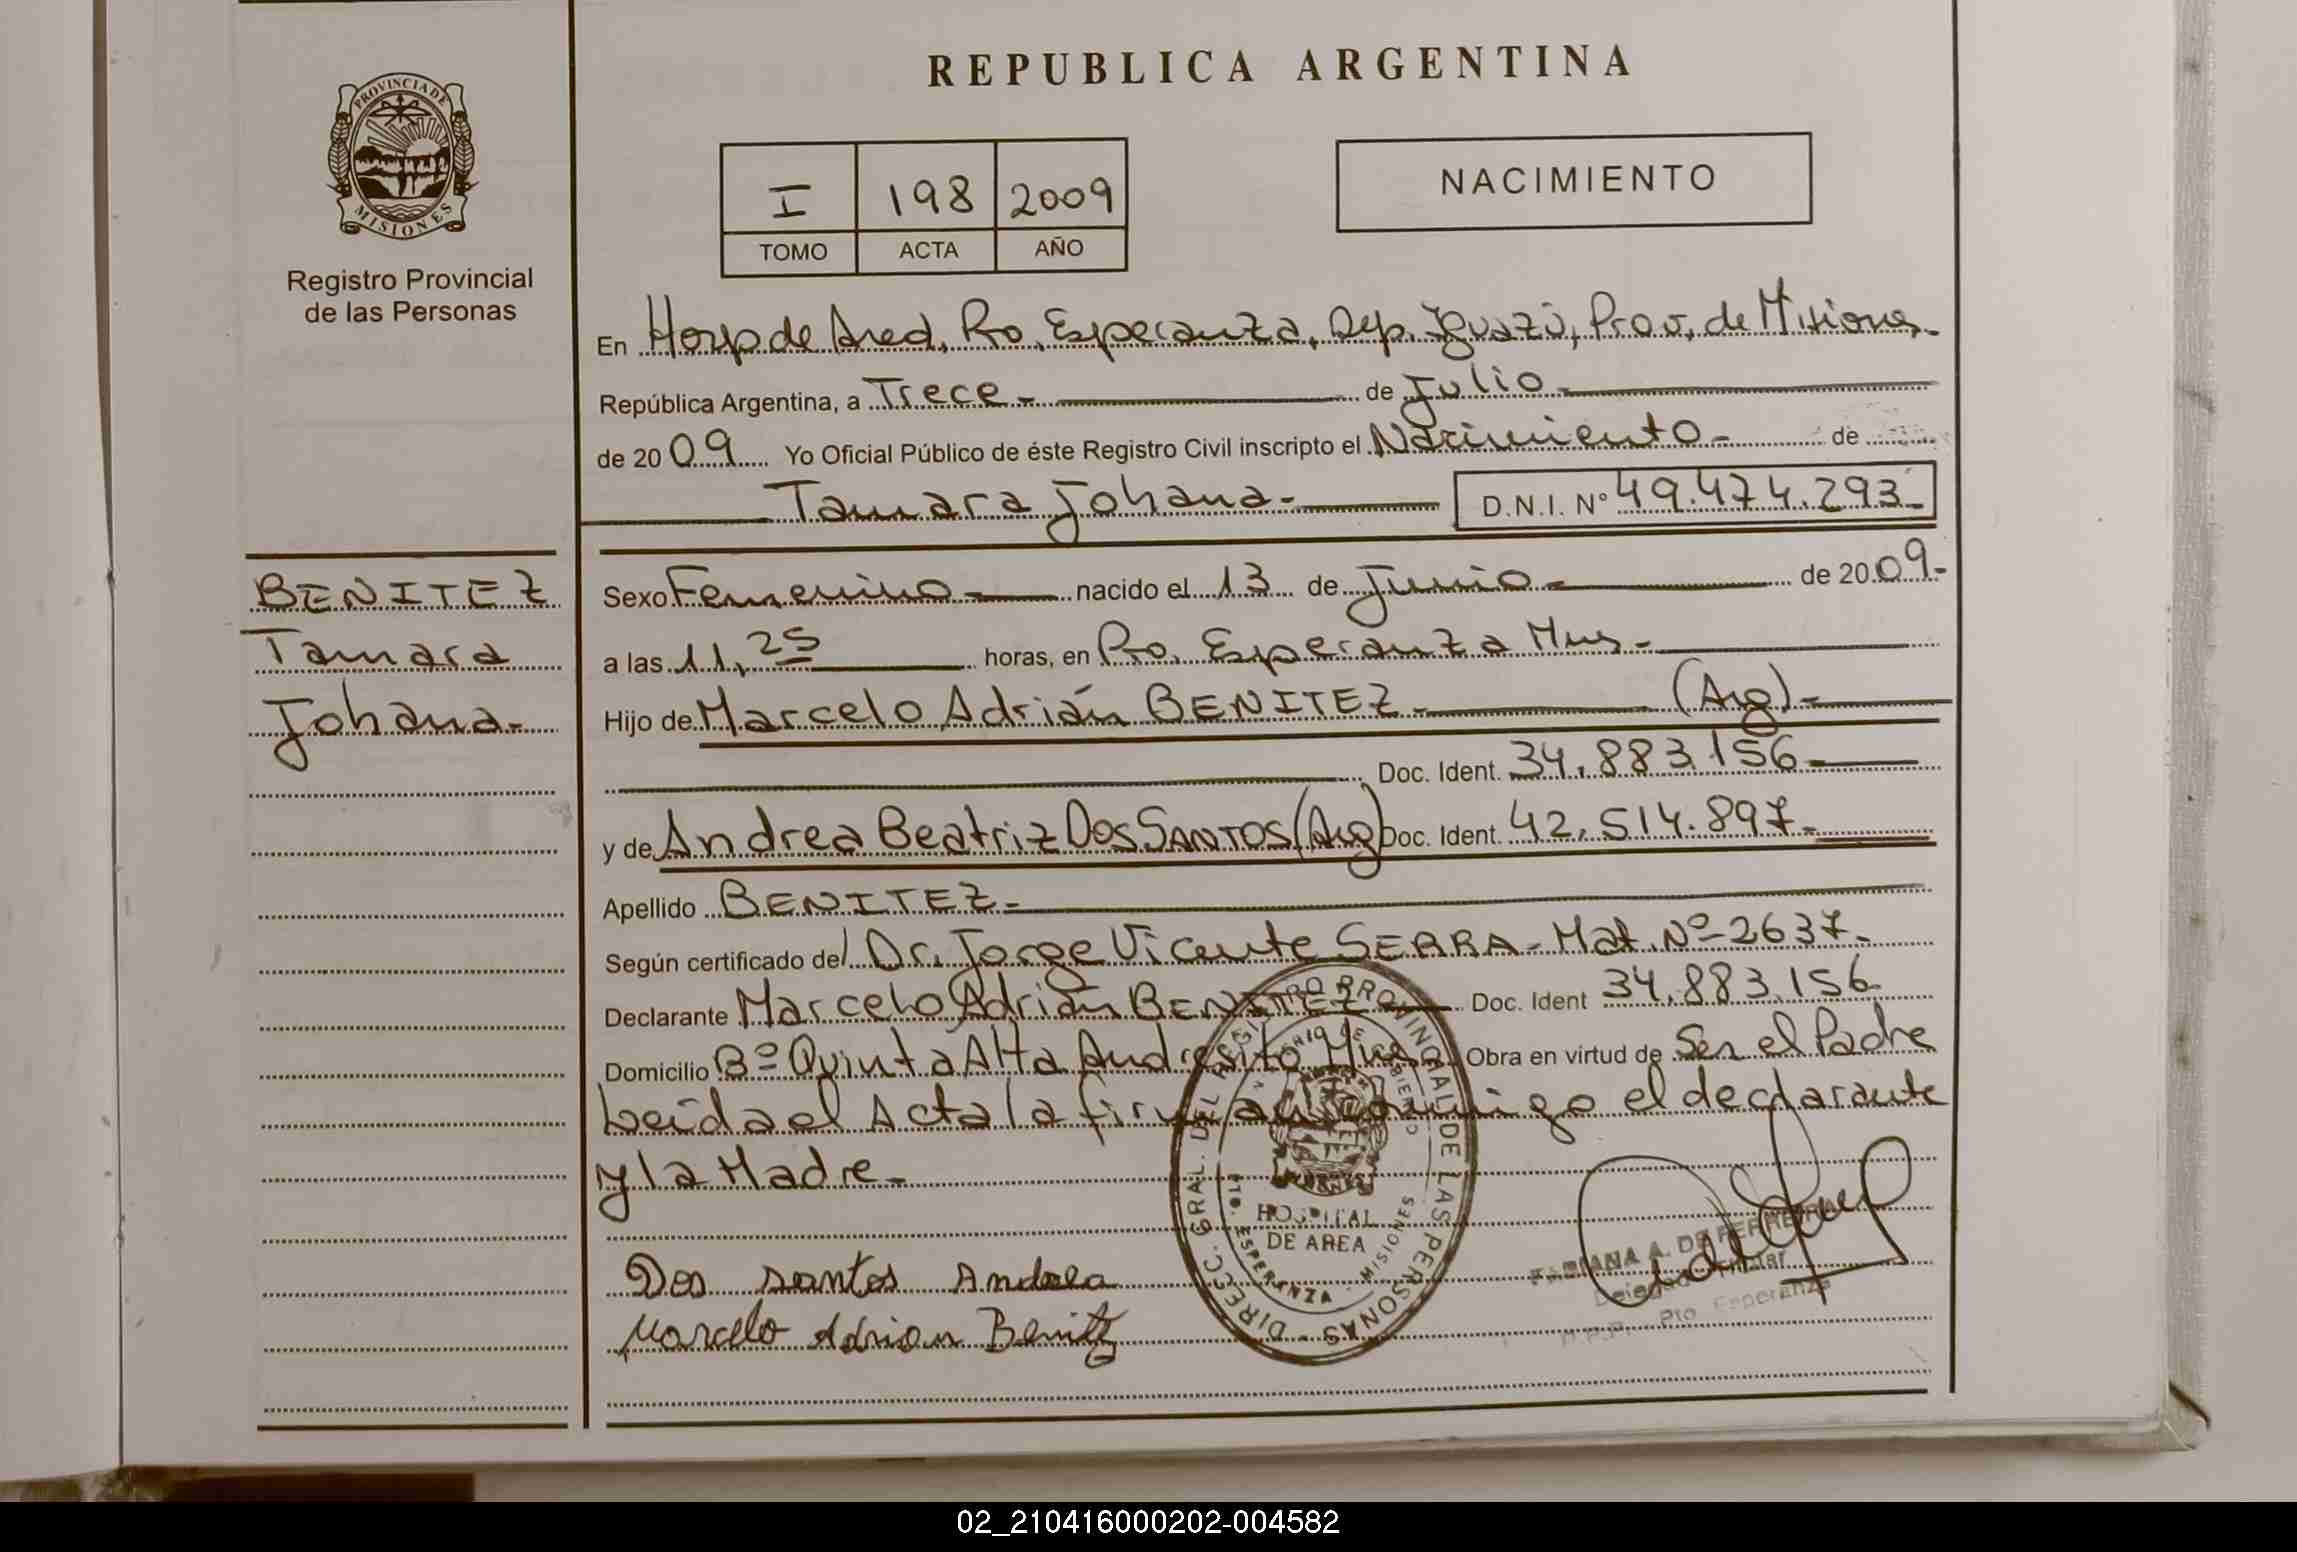 REPUBLICA ARGENTINA
PROVINCIA DE MISIONES
Registro Provincial
de las Personas
I 198 2009
TOMO ACTA AÑO
NACIMIENTO
En Hosp de Area, Pto. Esperanza, Dep. Iguazú, Prov. de Misiones-
República Argentina, a Trece- de Julio-
de 2009 Yo Oficial Público de éste Registro Civil inscripto el Nacimiento- de
Tamara Johana- D.N.I. Nº 49.474.293-
BENITEZ
Tamara
Johana-
Sexo Femenino- nacido el 13 de Junio- de 2009-
a las 11,25 horas, en Pto. Esperanza Mnes-
Hijo de Marcelo Adrián BENITEZ- (Arg)-
Doc. Ident. 34.883.156-
y de Andrea Beatriz DOS SANTOS (Arg) Doc. Ident. 42.514.897-
Apellido BENITEZ-
Según certificado del Dr. Jorge Vicente SERRA- Mat. Nº 2637-
Declarante Marcelo Adrián BENITEZ- Doc. Ident 34.883.156
Domicilio Bº Quinta Alta Andresito Mnes Obra en virtud de Ser el Padre
Leída el Acta la firman conmigo el declarante
y la Madre-
Dos santos Andrea
Marcelo Adrian Benitez
DIRECC. GRAL. DEL REGISTRO PROVINCIAL DE LAS PERSONAS
HOSPITAL
DE AREA
PTO. ESPERANZA - MISIONES
FABIANA A. DE FERREIRA
Delegada Titular
R.P.P. - Pto. Esperanza
02_210416000202-004582